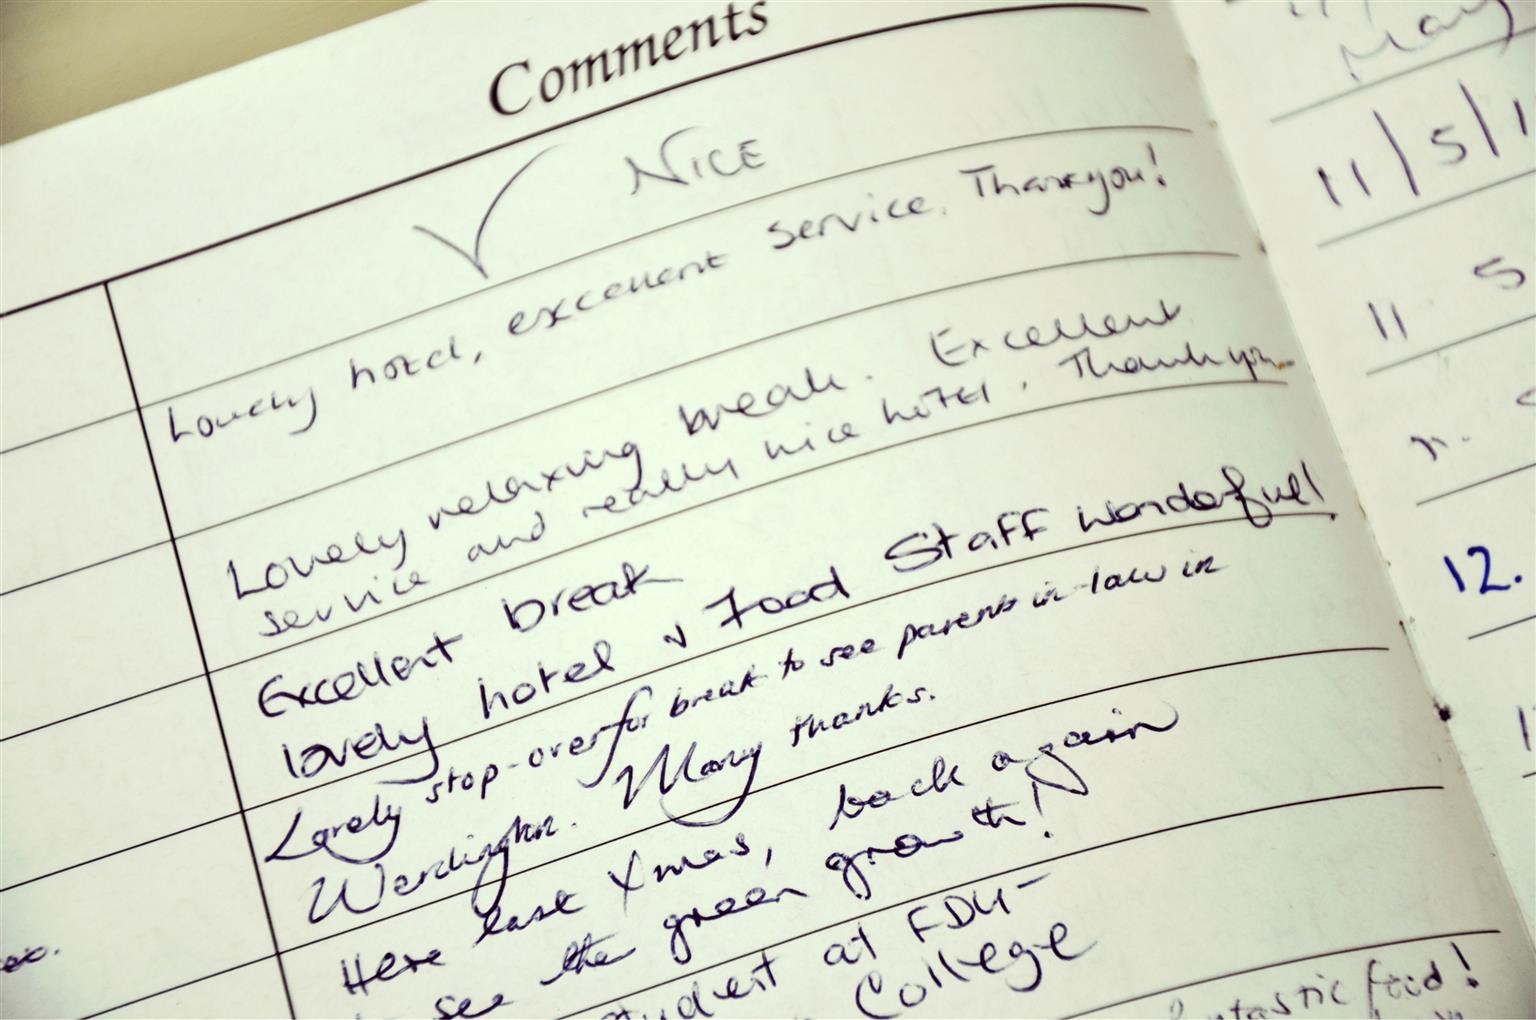 Comments
✓ NICE
Lovely hotel, excellent service. Thankyou!
Lovely relaxing break. Excellent
service and really nice hotel. Thank you.
Excellent break
lovely hotel & Food Staff wonderful!
Lovely stop-over for break to see parents in-law in
Wardington. Many thanks.
Here last Xmas, back again
to see the green growth!
student at FDU-
College
fantastic food!
May
11/5/1
11 5
12.